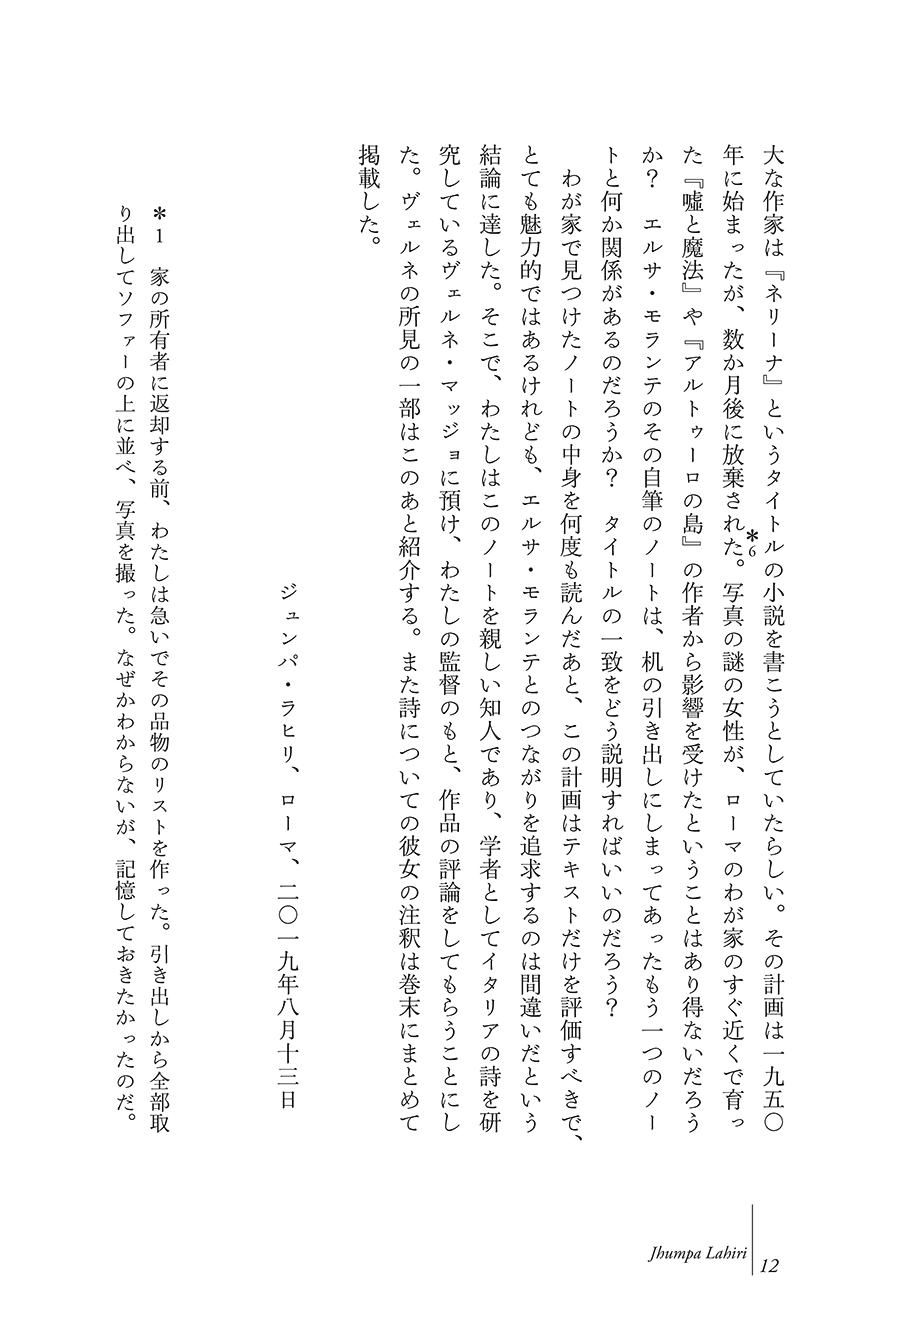 大な作家は『ネリーナ』というタイトルの小説を書こうとしていたらしい。その計画は一九五〇
年に始まったが、数か月後に放棄された。*6写真の謎の女性が、ローマのわが家のすぐ近くで育っ
た『嘘と魔法』や『アルトゥーロの島』の作者から影響を受けたということはあり得ないだろう
か？　エルサ・モランテのその自筆のノートは、机の引き出しにしまってあったもう一つのノー
トと何か関係があるのだろうか？　タイトルの一致をどう説明すればいいのだろう？
　わが家で見つけたノートの中身を何度も読んだあと、この計画はテキストだけを評価すべきで、
とても魅力的ではあるけれども、エルサ・モランテとのつながりを追求するのは間違いだという
結論に達した。そこで、わたしはこのノートを親しい知人であり、学者としてイタリアの詩を研
究しているヴェルネ・マッジョに預け、わたしの監督のもと、作品の評論をしてもらうことにし
た。ヴェルネの所見の一部はこのあと紹介する。また詩についての彼女の注釈は巻末にまとめて
掲載した。
ジュンパ・ラヒリ、ローマ、二〇一九年八月十三日
*1　家の所有者に返却する前、わたしは急いでその品物のリストを作った。引き出しから全部取
り出してソファーの上に並べ、写真を撮った。なぜかわからないが、記憶しておきたかったのだ。
Jhumpa Lahiri
12